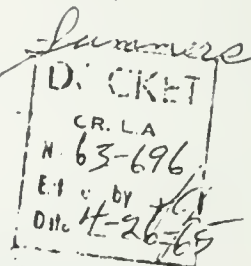 Summers
DOCKET
CR. L.A
N 63-696
by
Date 4-26-65